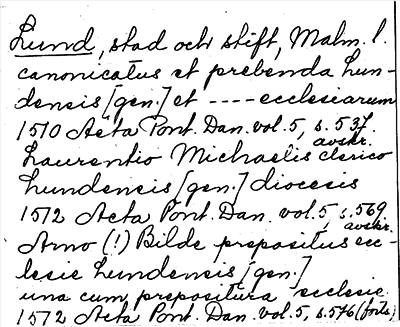 Lund, stad och stift, Malm. l.
canonicatus et prebenda Lun-
densis [gen.] et ---- ecclesiarum
1510 Acta Pont. Dan. vol. 5, s. 537.
avskr.
Laurentio Michaelis clerico
Lundensis [gen.] diocesis
1512 Acta Pont. Dan. vol. 5, s. 569
avskr.
Arno (!) Bilde prepositus ecc-
lesie Lundensis [gen.]
una cum prepositura ecclesie
1512 Acta Pont. Dan. vol. 5, s. 576 (forts)